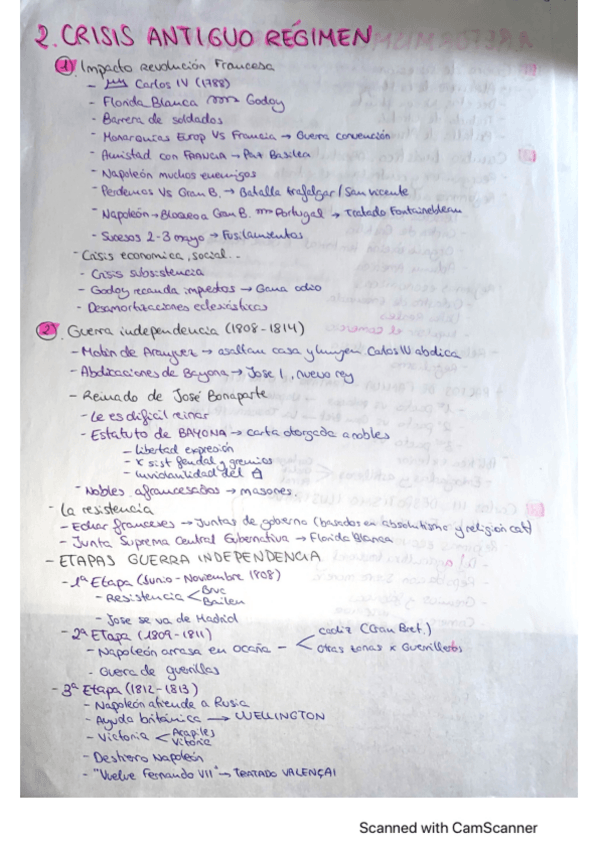 2. CRISIS ANTIGUO RÉGIMEN
1) Impacto revolución Francesa
- Carlos IV (1788)
- Florida Blanca Godoy
- Barrera de soldados
- Monarquías Europ Vs Francia → Guerra convención
- Amistad con FRANCIA → Paz Basilea
- Napoleón muchos enemigos
- Perdemos Vs Gran B. → Batalla trafalgar / San vicente
- Napoleón → Bloqueo a Gran B. Portugal → Tratado Fontainebleau
- Sucesos 2-3 mayo → Fusilamientos
- Crisis economica, social...
- Crisis subsistencia
- Godoy recauda impuestos → Gana odio
- Desamortizaciones eclesiásticas
2. Guerra independencia (1808-1814)
- Motín de Aranjuez → asaltan casa y huyen. Carlos IV abdica
- Abdicaciones de Bayona → Jose I, nuevo rey
- Reinado de José Bonaparte
- Le es dificil reinar
- Estatuto de BAYONA → carta otorgada a nobles
- libertad expresión
- x sist feudal y gremios
- inviolabilidad del
- Nobles afrancesados → masones.
- La resistencia
- Echar franceses → Juntas de gobierno (basados en absolutismo y religion cat)
- Junta Suprema Central Gubernativa → Florida Blanca
- ETAPAS GUERRA INDEPENDENCIA
- 1ª Etapa (Junio - Noviembre 1808)
- Resistencia < Bruc
Bailen
- Jose se va de Madrid
- 2ª ETapa (1809-1811)
- Napoleón arrasa en ocaña - < cadiz (Gran Bret.)
otras zonas x Guerrilleros
- Guerra de guerrillas
- 3ª Etapa (1812-1813)
- Napoleón atiende a Rusia
- Ayuda británica → WELLINGTON
- Victoria < Arapiles
Vitoria
- Destierro Napoleón
- "Vuelve Fernando VII" → TRATADO VALENÇAI
Scanned with CamScanner